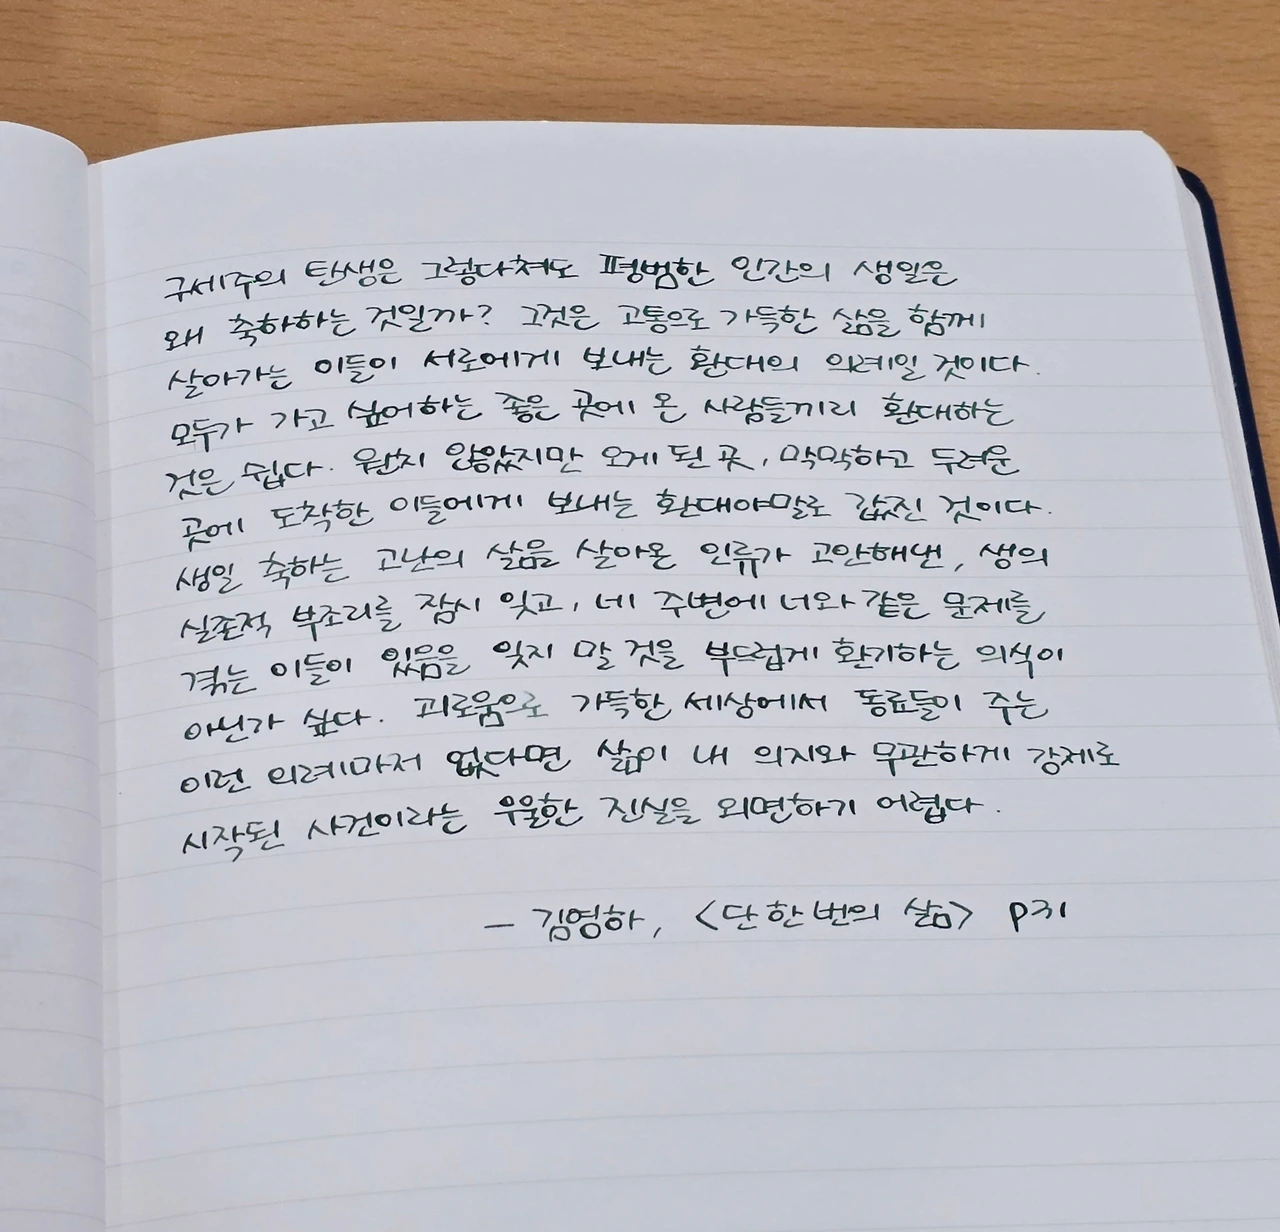 구세주의 탄생은 그렇다쳐도 평범한 인간의 생일은
왜 축하하는 것일까? 그것은 고통으로 가득한 삶을 함께
살아가는 이들이 서로에게 보내는 환대의 의례일 것이다.
모두가 가고 싶어하는 좋은 곳에 온 사람들끼리 환대하는
것은 쉽다. 원치 않았지만 오게 된 곳, 막막하고 두려운
곳에 도착한 이들에게 보내는 환대야말로 값진 것이다.
생일 축하는 고난의 삶을 살아온 인류가 고안해낸, 생의
실존적 부조리를 잠시 잊고, 네 주변에 너와 같은 문제를
겪는 이들이 있음을 잊지 말 것을 부드럽게 환기하는 의식이
아닌가 싶다. 괴로움으로 가득한 세상에서 동료들이 주는
이런 의례마저 없다면 삶이 내 의지와 무관하게 강제로
시작된 사건이라는 우울한 진실을 외면하기 어렵다.
- 김영하, <단 한 번의 삶> p31